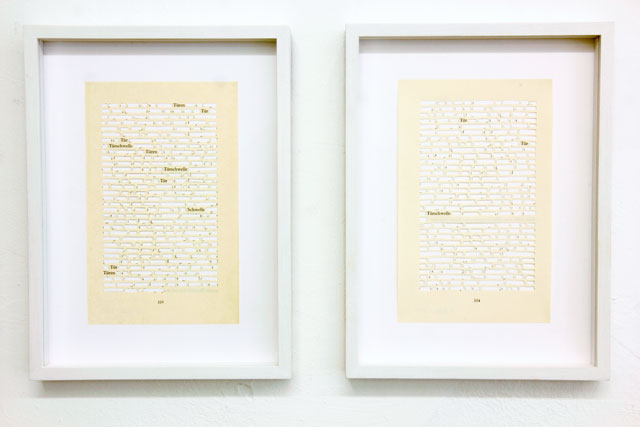 Türen
Tür
Tür
Türschwelle
Türen
Türschwelle
Tür
Schwelle
Tür
Türen
Tür
Tür
Türschwelle
194